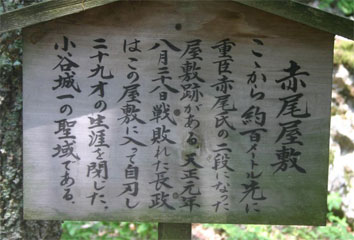 赤尾屋敷
ここから約百メートル先に
重臣赤尾氏の二段になった
屋敷跡がある。天正元年
八月二十八日戦に敗れて長政
はこの屋敷に入って自刃し
二十九才の生涯を閉じた。
小谷城一の聖域である。